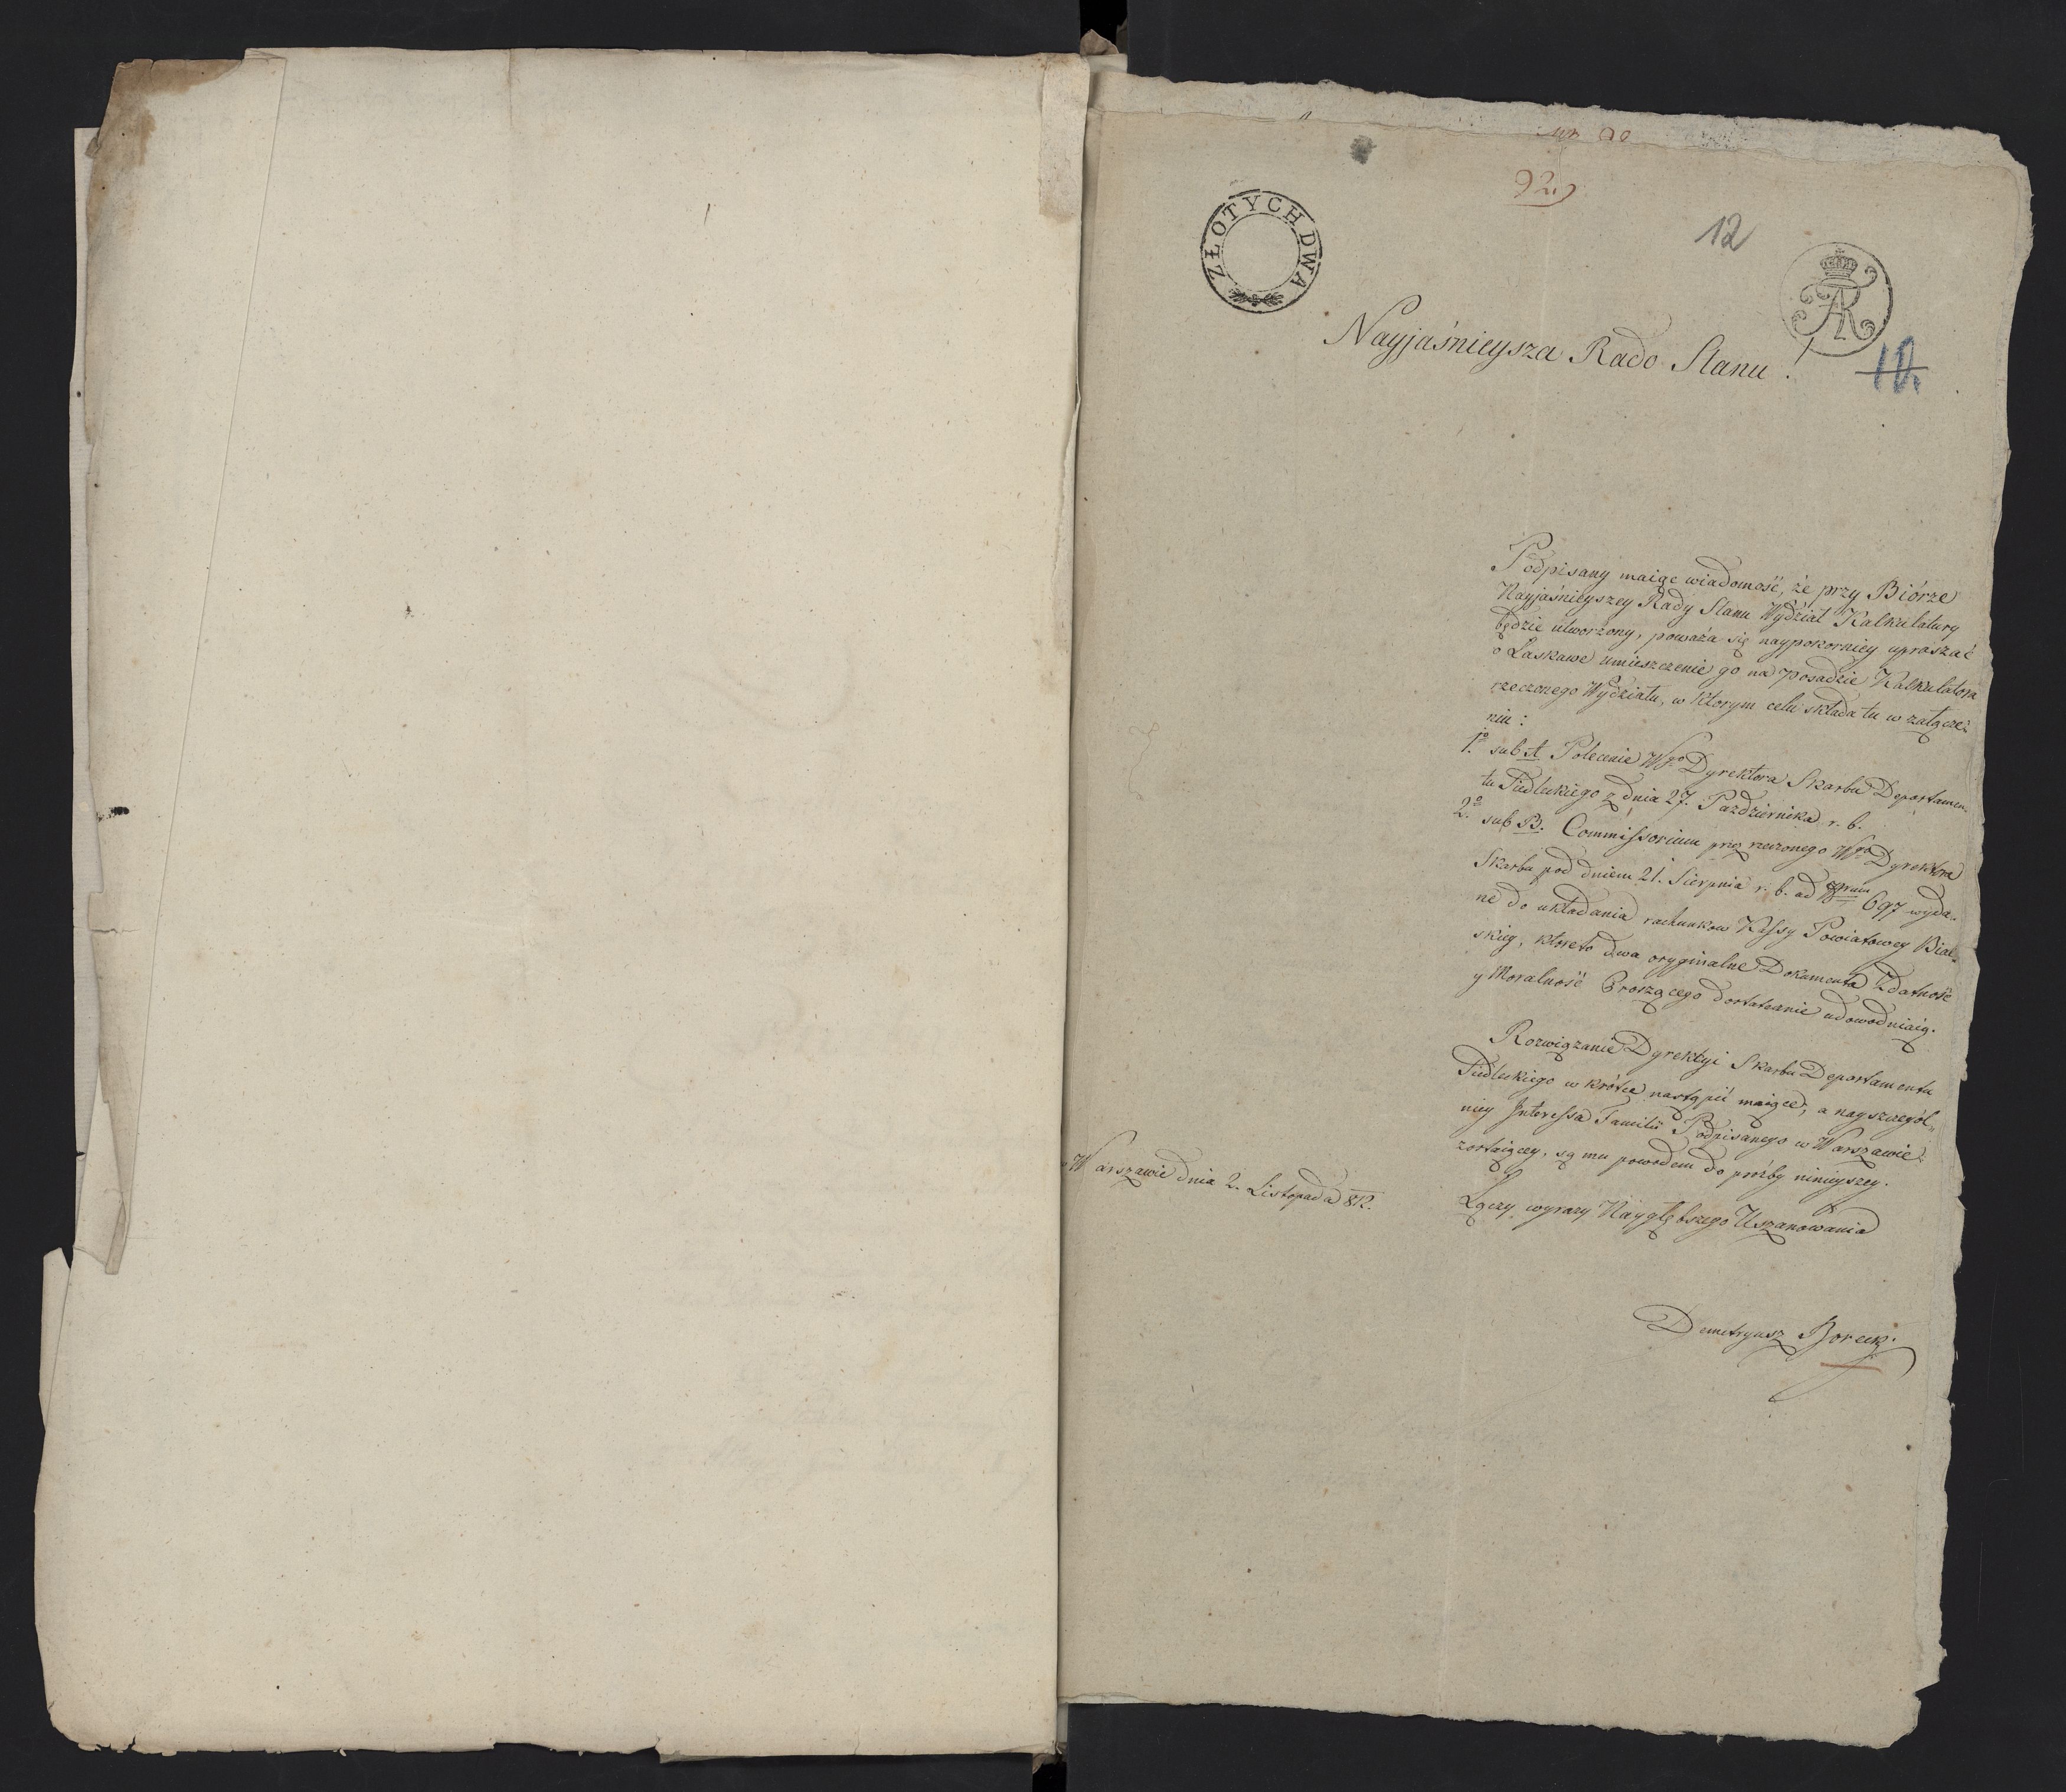 92.
12
ZŁOTYCH DWA
Nayjaśnieysza Rado Stanu!
12.
Podpisany maiąc wiadomość, że przy Biórze
Nayjaśnieyszey Rady Stanu Wydział Kalkulatury
będzie utworzony, poważa się naypokorniey upraszać
o Łaskawe umieszczenie go na posadzie Kalkulatora
rzeczonego Wydziału, w którym celu składa tu w załącze-
niu:
1o sub A Polecenie Wgo Dyrektora Skarbu Departamen-
tu Siedleckiego z dnia 27. Pazdziernika r. b.
2o sub B. Commissorium przez rzeczonego Wgo Dyrektora
Skarbu pod dniem 21. Sierpnia r. b. ad 697 wyda-
ne do układania rachunkow Kassy Powiatowey Bial-
skiey, któreto dwa oryginalne Dokumenta Zdatność
y Moralność Proszącego dostatecznie udowodniaią.
Rozwiązanie Dyrekcyi Skarbu Departamentu
Siedleckiego w krótce nastąpić maiące, a nayszczegól-
niey Interessa Familii Podpisanego w Warszawie
zostaiącey, są mu powodem do prośby ninieyszey.
w Warszawie dnia 2. Listopada 812.
Łączy wyrazy Naygłębszego Uszanowania
Demetryusz Borecki